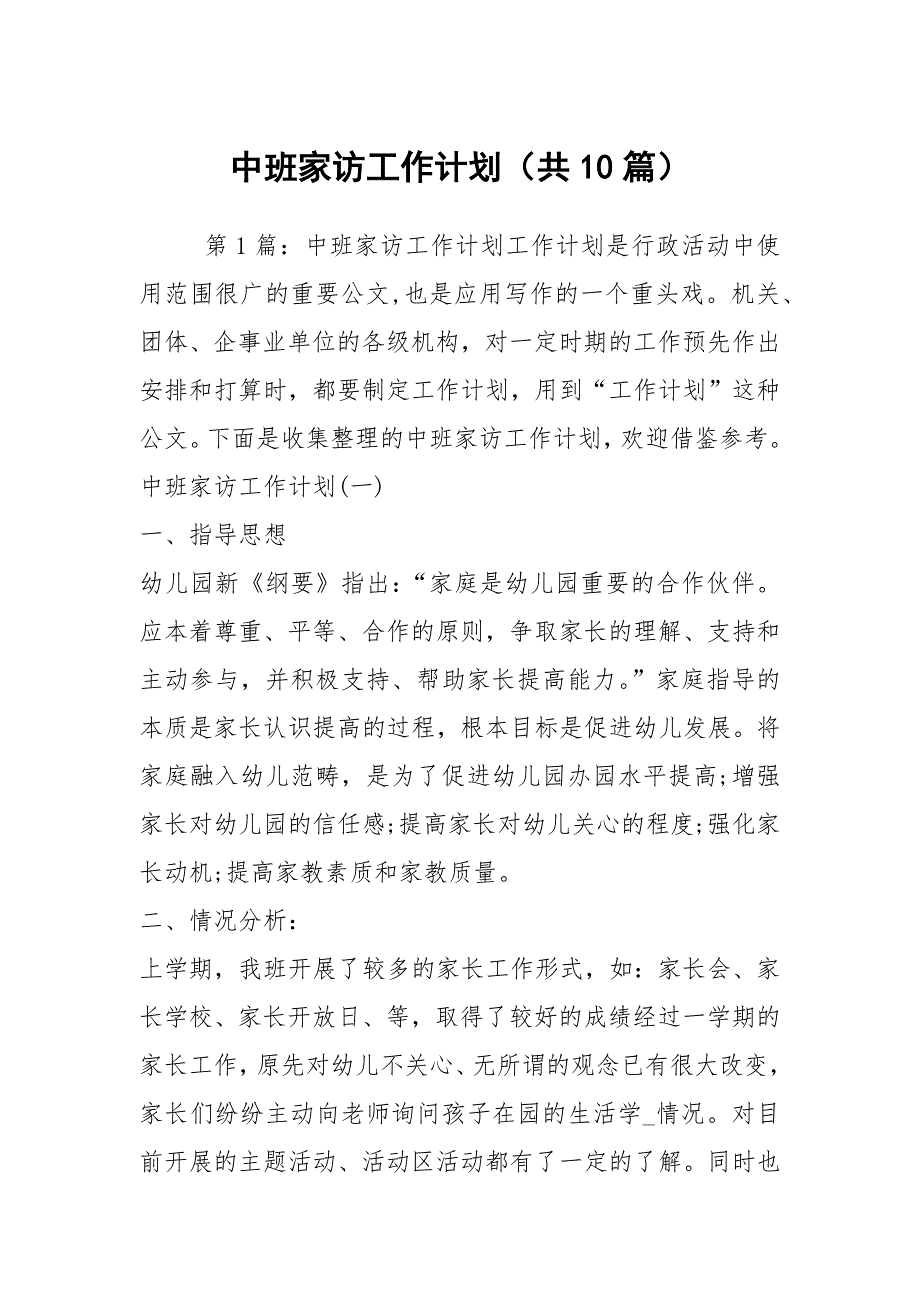 中班家访工作计划（共10篇）
第1篇：中班家访工作计划工作计划是行政活动中使
用范围很广的重要公文,也是应用写作的一个重头戏。机关、
团体、企事业单位的各级机构，对一定时期的工作预先作出
安排和打算时，都要制定工作计划，用到“工作计划”这种
公文。下面是收集整理的中班家访工作计划，欢迎借鉴参考。
中班家访工作计划(一)
一、指导思想
幼儿园新《纲要》指出：“家庭是幼儿园重要的合作伙伴。
应本着尊重、平等、合作的原则，争取家长的理解、支持和
主动参与，并积极支持、帮助家长提高能力。”家庭指导的
本质是家长认识提高的过程，根本目标是促进幼儿发展。将
家庭融入幼儿范畴，是为了促进幼儿园办园水平提高;增强
家长对幼儿园的信任感;提高家长对幼儿关心的程度;强化家
长动机;提高家教素质和家教质量。
二、情况分析：
上学期，我班开展了较多的家长工作形式，如：家长会、家
长学校、家长开放日、等，取得了较好的成绩经过一学期的
家长工作，原先对幼儿不关心、无所谓的观念已有很大改变，
家长们纷纷主动向老师询问孩子在园的生活学_情况。对目
前开展的主题活动、活动区活动都有了一定的了解。同时也